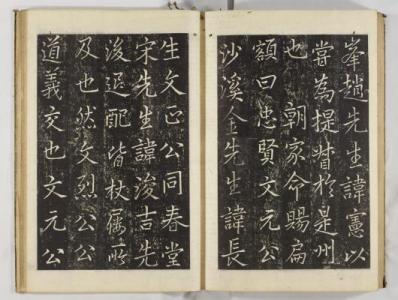 峯趙先生諱憲以
嘗為提督於是州
也朝家命賜扁
額曰忠賢文元公
沙溪金先生諱長
生文正公同春堂
宋先生諱浚吉先
後追配皆杖屨所
及也然文烈公公
道義交也文元公